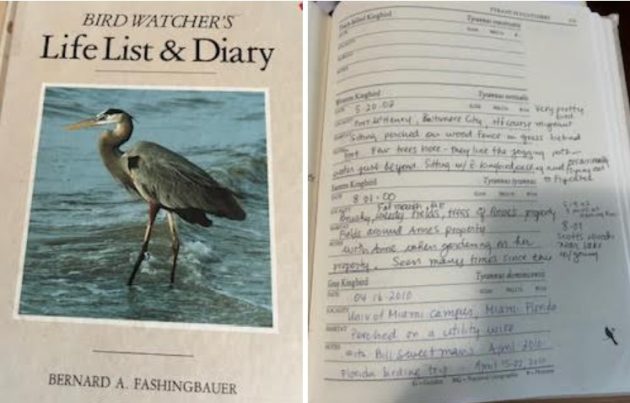 BIRD WATCHER'S
Life List & Diary
BERNARD A. FASHINGBAUER
TYRANT FLYCATCHERS
Kingbird
Tyrannus
DATE
LOCALITY
HABITAT
NOTES
Western Kingbird Tyrannus verticalis
DATE 5.20.02 Very pretty
LOCALITY Fort McHenry, Baltimore City, off course migrant bird
HABITAT Sitting perched on wood fence on grass behind
NOTES fort. Few trees there - they like the jogging path
water just beyond. Sitting w/ E kingbird occasionally
flying out
Eastern Kingbird Tyrannus tyrannus
DATE 8-01-00
LOCALITY Brushy, weedy fields, trees of Anne's property
HABITAT fields around Anne's property 8-01
NOTES with Anne when gardening on her
property. Seen many times since then w/young
Gray Kingbird Tyrannus dominicensis
DATE 04 16 2010
LOCALITY Univ of Miami campus, Miami Florida
HABITAT Perched on a utility wire
NOTES with Bill Sweetman's April 2010
Florida birding trip - April 15-22, 2010
G = Golden NG = National Geographic P = Peterson